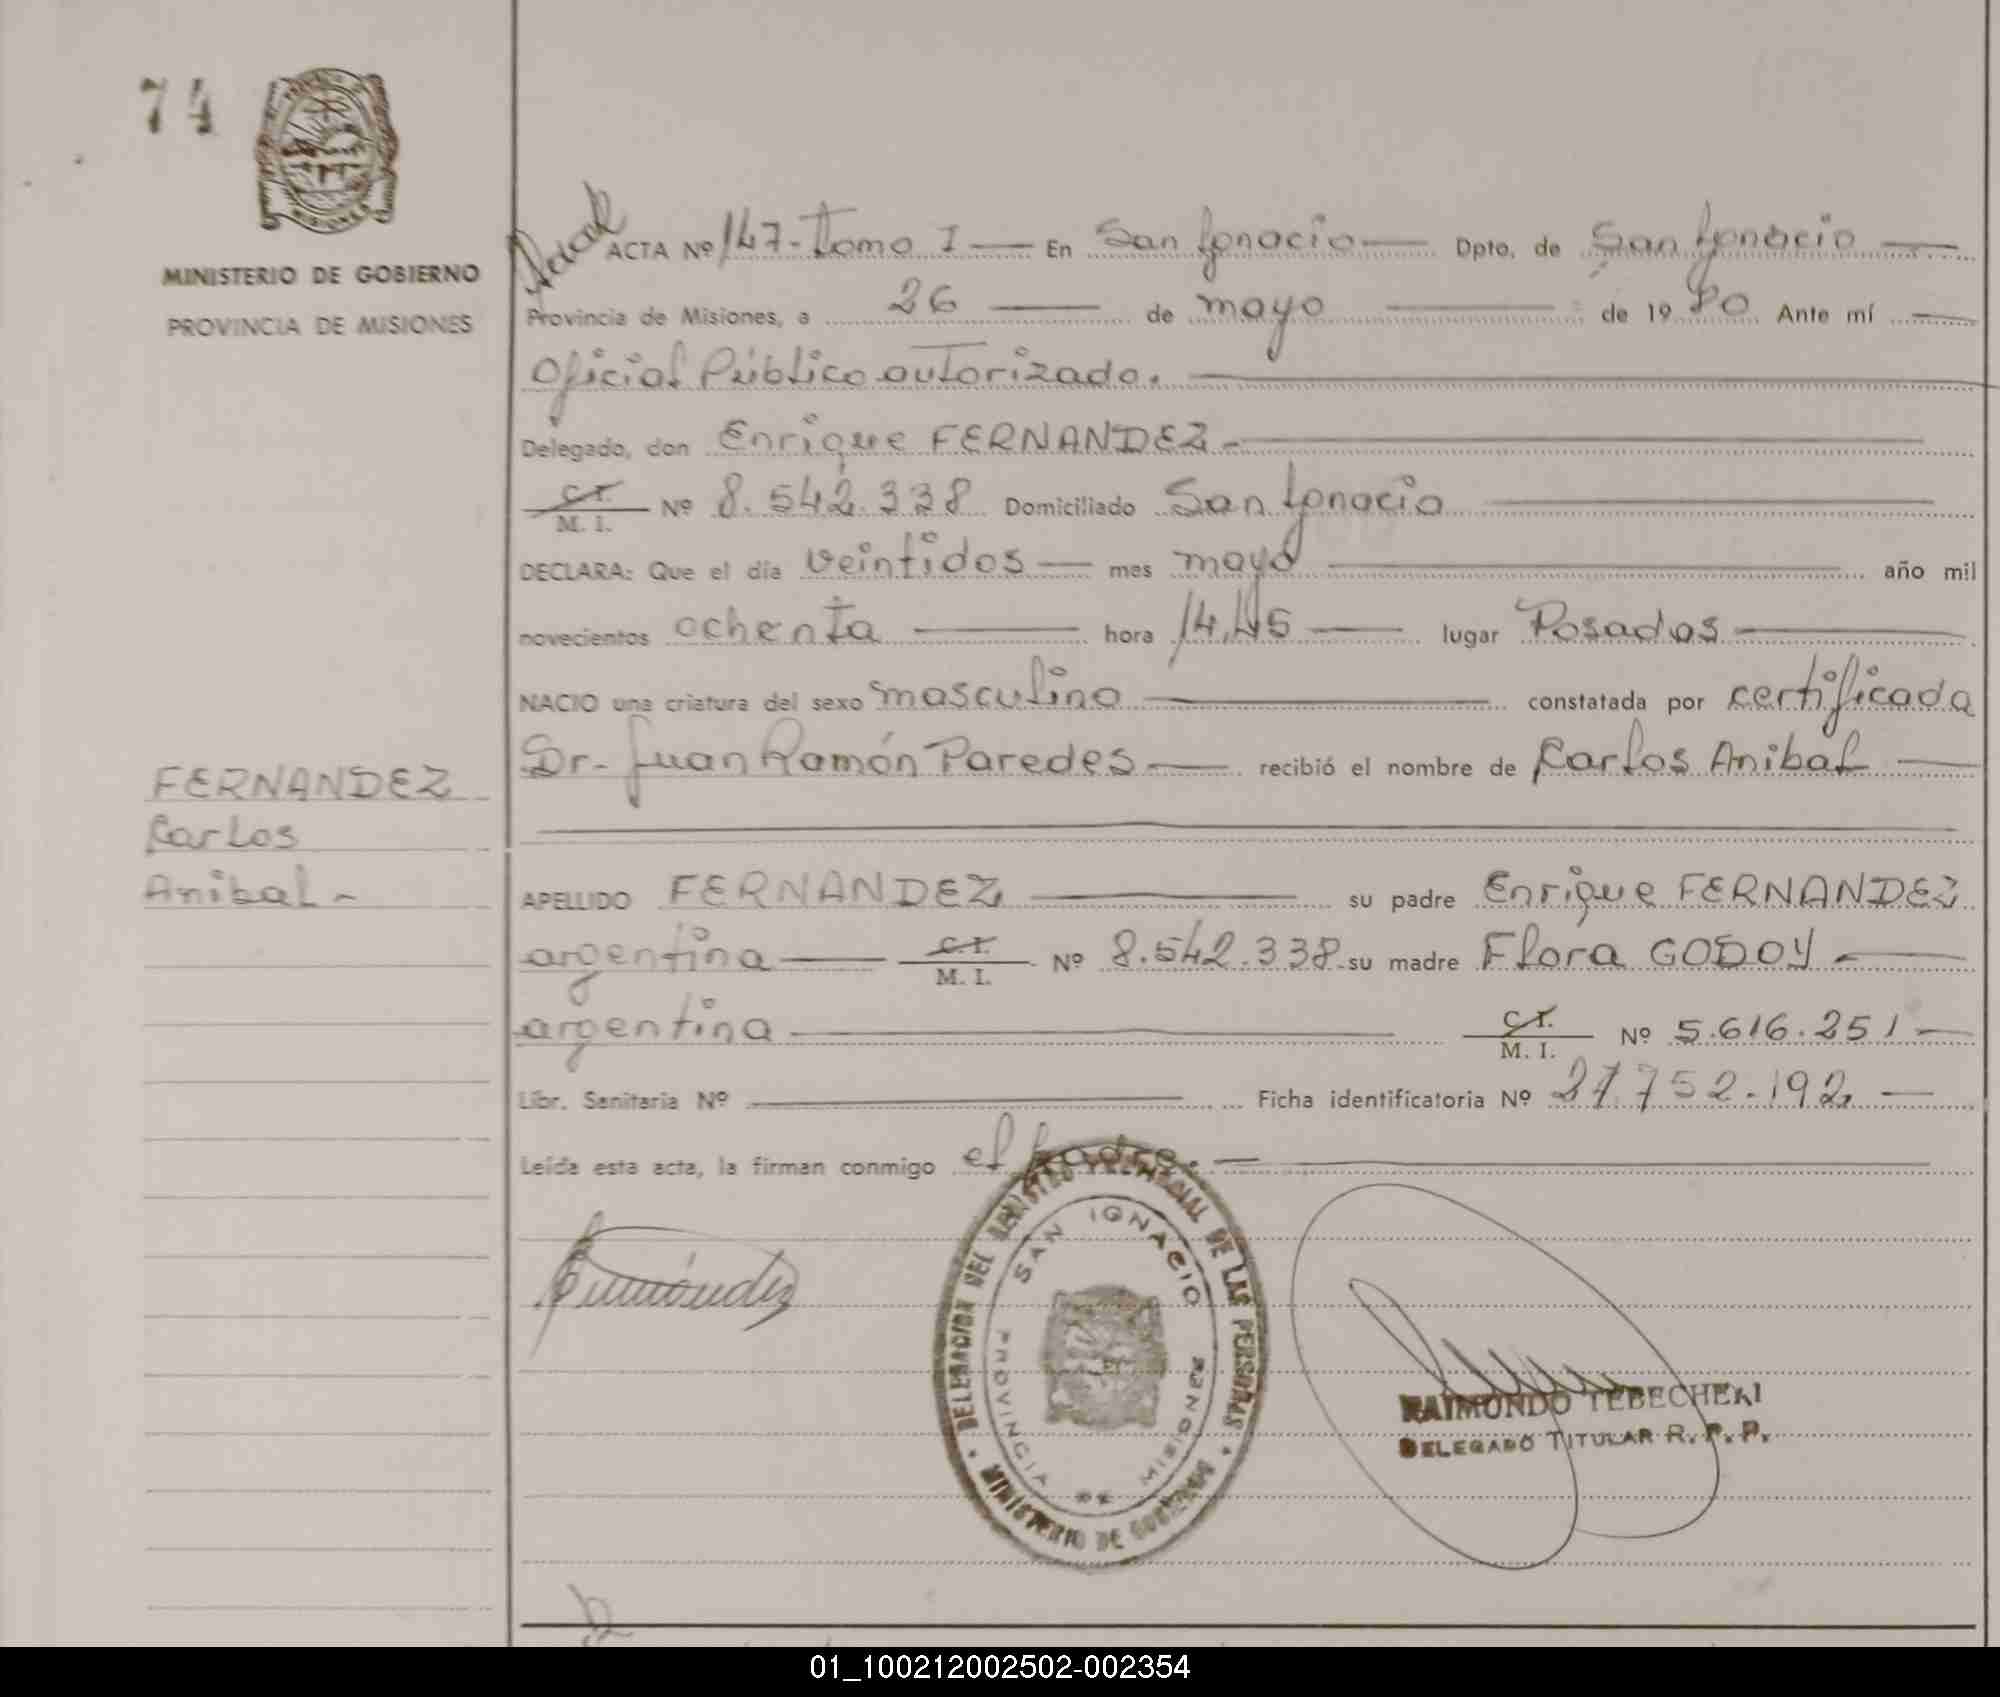 74
MISIONES
MINISTERIO DE GOBIERNO
PROVINCIA DE MISIONES
FERNANDEZ
Carlos
Anibal -
ACTA Nº 147 - Tomo I — En San Ignacio — Dpto. de San Ignacio —
Provincia de Misiones, a 26 — de mayo — de 1980 Ante mí —
Oficial Público autorizado. —
Delegado, don Enrique FERNANDEZ - —
C. I. / M. I. Nº 8.542.338 Domiciliado San Ignacio —
DECLARA: Que el día veintidos — mes mayo — año mil
novecientos ochenta — hora 14,45 — lugar Posadas —
NACIO una criatura del sexo masculino — constatada por certificada
Dr. Juan Ramón Paredes — recibió el nombre de Carlos Anibal —
APELLIDO FERNANDEZ — su padre Enrique FERNANDEZ
argentina — C. I. / M. I. Nº 8.542.338 su madre Flora GODOY —
argentina — C. I. / M. I. Nº 5.616.251 —
Libr. Sanitaria Nº — Ficha identificatoria Nº 27.752.192 —
Leída esta acta, la firman conmigo el padre. —
Fernández
DELEGACION DEL REGISTRO PROVINCIAL DE LAS PERSONAS
MINISTERIO DE GOBIERNO
SAN IGNACIO
PROVINCIA DE MISIONES
RAIMONDO TEBECHERI
DELEGADO TITULAR R. P. P.
01_100212002502-002354